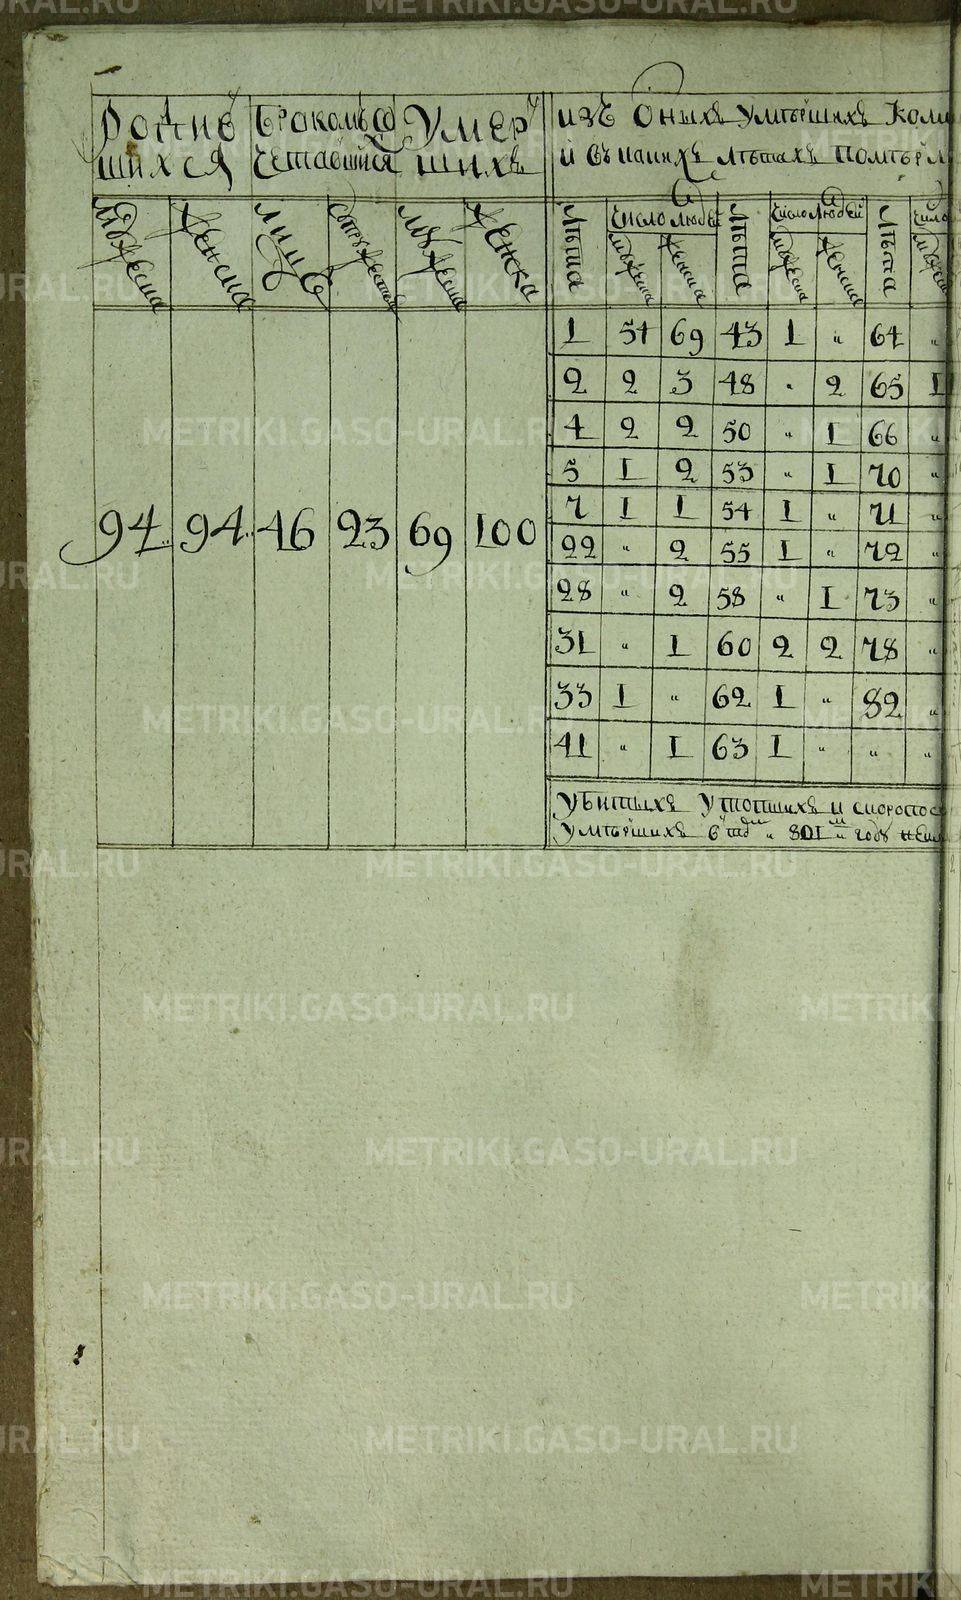 Родив Бракомъ со Умер изъ Оныхъ Умершихъ
шихся четавшихся шихъ и въ какихъ лѣтахъ
Мужеска Женска Лицъ Мужеска Женска Лѣта Число людей Лѣта Число людей Лѣта
Мужеска Женска Мужеска Женска Мужеска
94 94 46 23 69 100
1 51 69 43 1 „ 64 „
2 2 3 48 „ 2 65 1
4 2 2 50 „ 1 66 „
5 1 2 53 „ 1 70 „
7 1 1 54 1 „ 71 „
22 „ 2 55 1 „ 72 „
28 „ 2 58 „ 1 73 „
31 „ 1 60 2 2 78 „
33 1 „ 62 1 „ 82 „
41 „ 1 63 1 „ „ „
Убитыхъ Утопшихъ и скоропос
умершихъ 801 году
METRIKI.GASO-URAL.RU